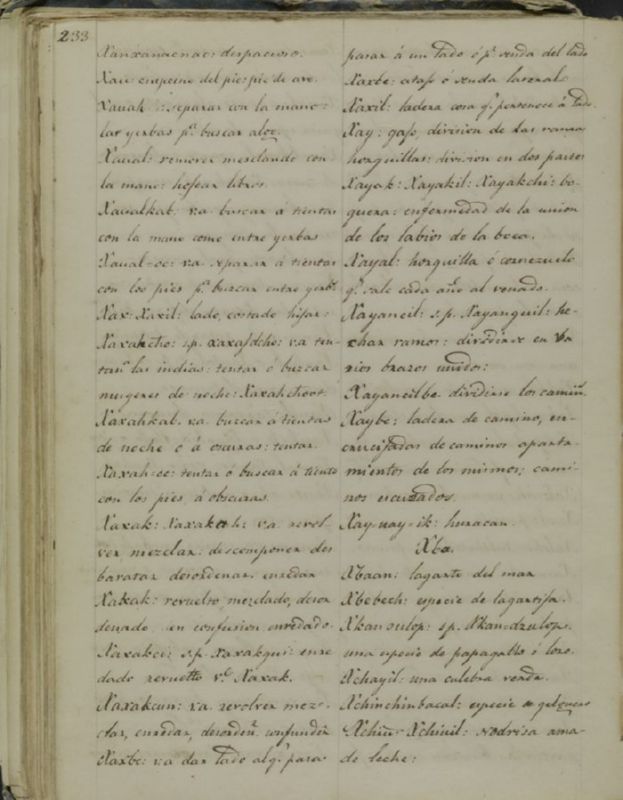 233
Xanxanacnac: despacioso.
Xau: empeine del pie: pie de ave.
Xauah: separar con la mano:
las yerbas pª buscar algo.
Xaual: remover mesclando con
la mano: hojear libros.
Xaualkab: va. buscar á tientas
con la mano como entre yerbas
Xaual=oc: va. á tientas
con los pies pª buscar entre yerbs
Xax: Xaxil: lado, costado hijar:
Xaxahcho: s.p. va ten-
las indias: tentar ó buscar
mugeres de noche: Xaxahchoot.
Xaxahkab. va. buscar á tientas
de noche ó á oscuras: tentar.
Xaxah=oc: tentar ó buscar á tiento
con los pies á obscuras.
Xaxak: va. revol-
ver, mezclar: descomponer des
baratar desordenar. enredar
Xaxak: revuelto, mezclado, desor
denado, en confusion enredado.
Xaxakci: s.p. Xaxakqui: enre
dado revuelto vº Xaxak.
Xaxakcun: va. revolver mez-
clar, enredar, confundir
Xaxbe: va dar lado algº para
pasar á un lado ó pº senda del lado
Xaxbe: atajo ó senda lateral
Xaxil: ladera cosa qº pertenece á lado.
Xay: gajo, division de las ramas
horquillas: division en dos partes
Xayak: Xayakil: Xayakchi: bo-
quera: enfermedad de la union
de los labios de la boca.
Xayal: horquilla ó cornezuelo
qº sale cada año al venado.
Xayancil: s.p. Xayanquil: he-
char ramos: dividirse en va
rios brazos unidos:
Xayancilbe dividirse los camin
Xaybe: ladera de camino, en-
crucijadas de caminos aparta-
mientos de los mismos; cami-
nos escusados.
Xay-nay-ik: huracan.
Xba.
Xbaan: lagarto del mar
Xbebech: especie de lagartija.
Xkandzulop: s.p. Xkan=dzulop.
una especie de papagallo ó loro.
Xchayil: una culebra verde.
Xchinchinbacal: especie de
Xchiin Xchiinil: nodrisa ama
de leche: